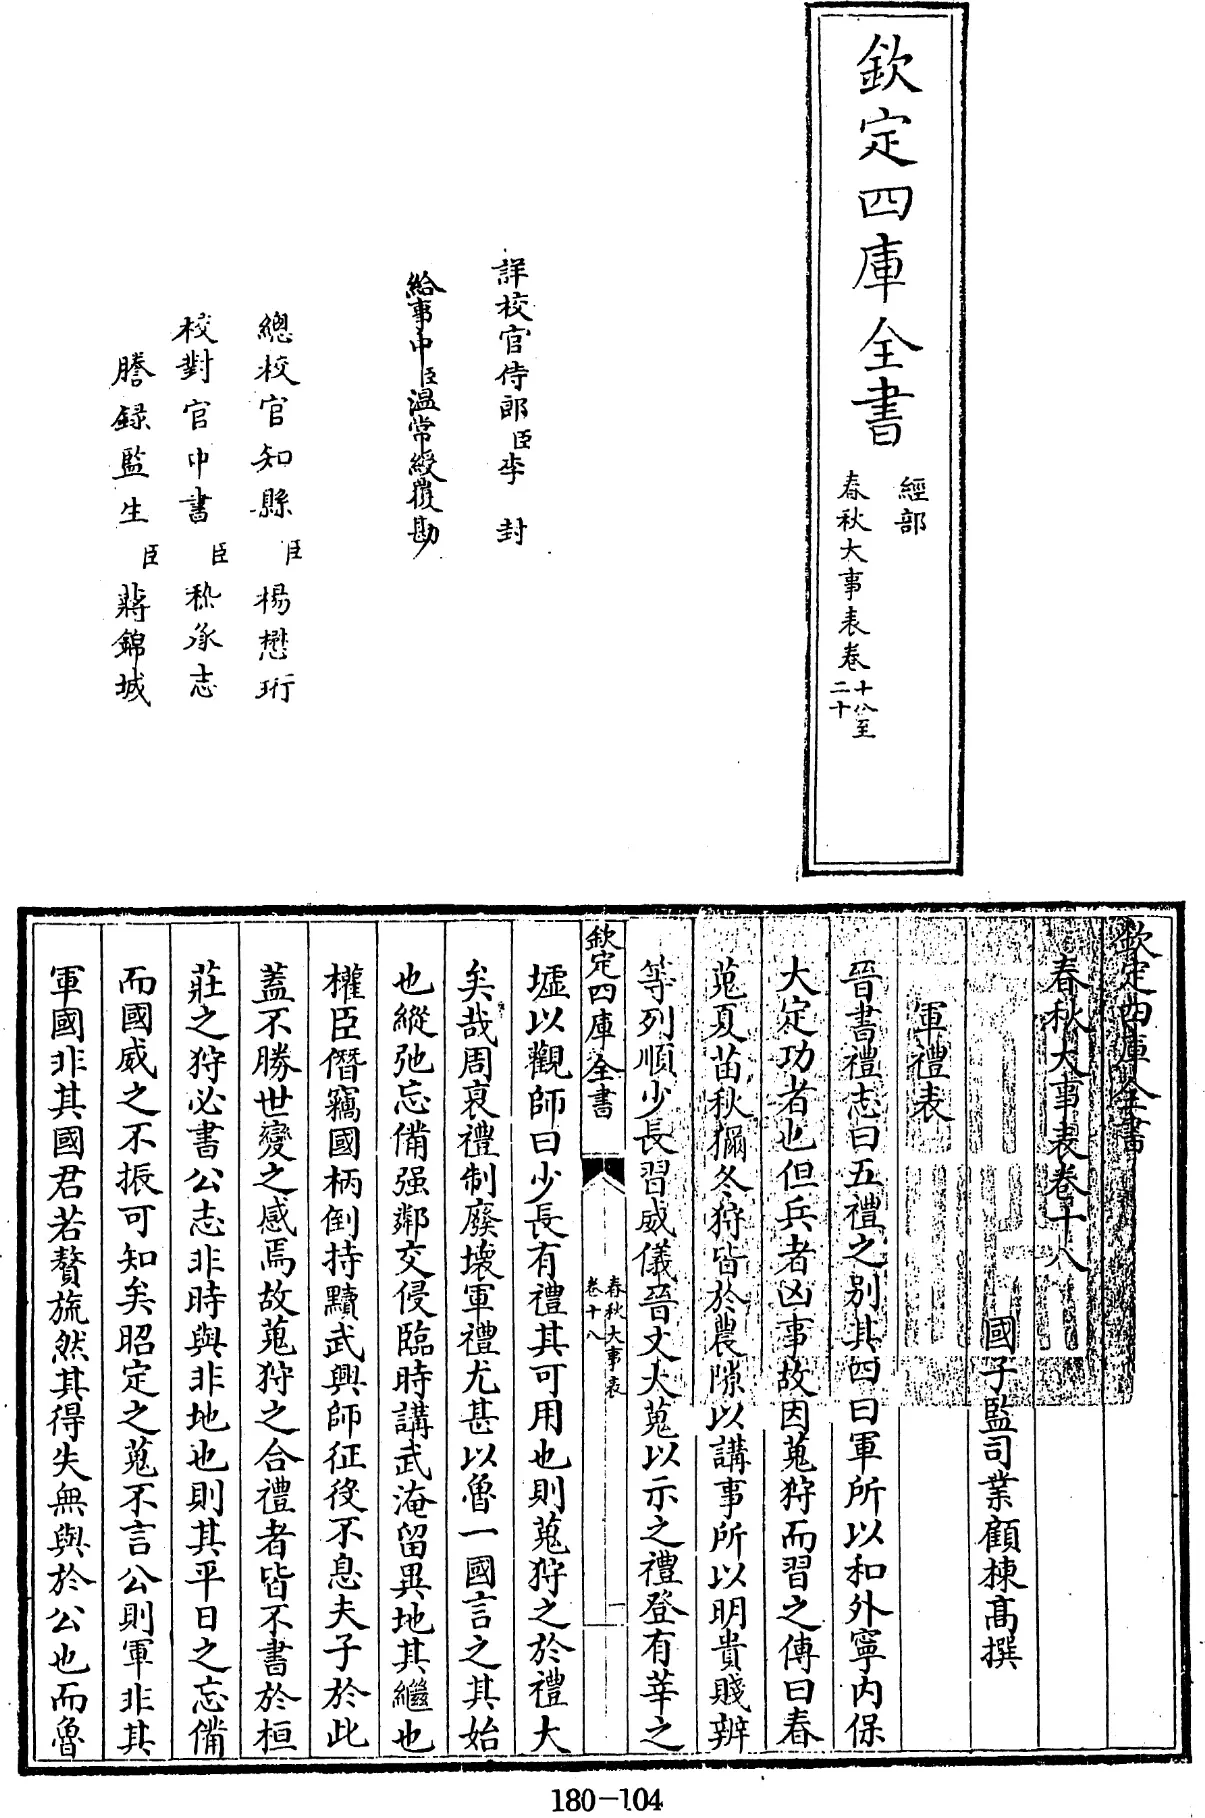 欽定四庫全書
經部
春秋大事表卷十八至
二十
詳校官侍郎臣李封
給事中臣温常綬覆勘
總校官知縣臣楊懋珩
校對官中書臣嵇承志
謄録監生臣蔣錦城
欽定四庫全書
春秋大事表卷十八
國子監司業顧棟高撰
軍禮表
晉書禮志曰五禮之别其四曰軍所以和外寧内保
大定功者也但兵者凶事故因蒐狩而習之傳曰春
蒐夏苗秋獮冬狩皆於農隙以講事所以明貴賤辨
等列順少長習威儀晉文大蒐以示之禮登有莘之
欽定四庫全書
春秋大事表
卷十八
一
墟以觀師曰少長有禮其可用也則蒐狩之於禮大
矣哉周衰禮制廢壞軍禮尤甚以魯一國言之其始
也縱弛忘備强鄰交侵臨時講武淹留異地其繼也
權臣僭竊國柄倒持黷武興師征役不息夫子於此
蓋不勝世變之感焉故蒐狩之合禮者皆不書於桓
莊之狩必書公志非時與非地也則其平日之忘備
而國威之不振可知矣昭定之蒐不言公則軍非其
軍國非其國君若贅旒然其得失無與於公也而魯
180-104